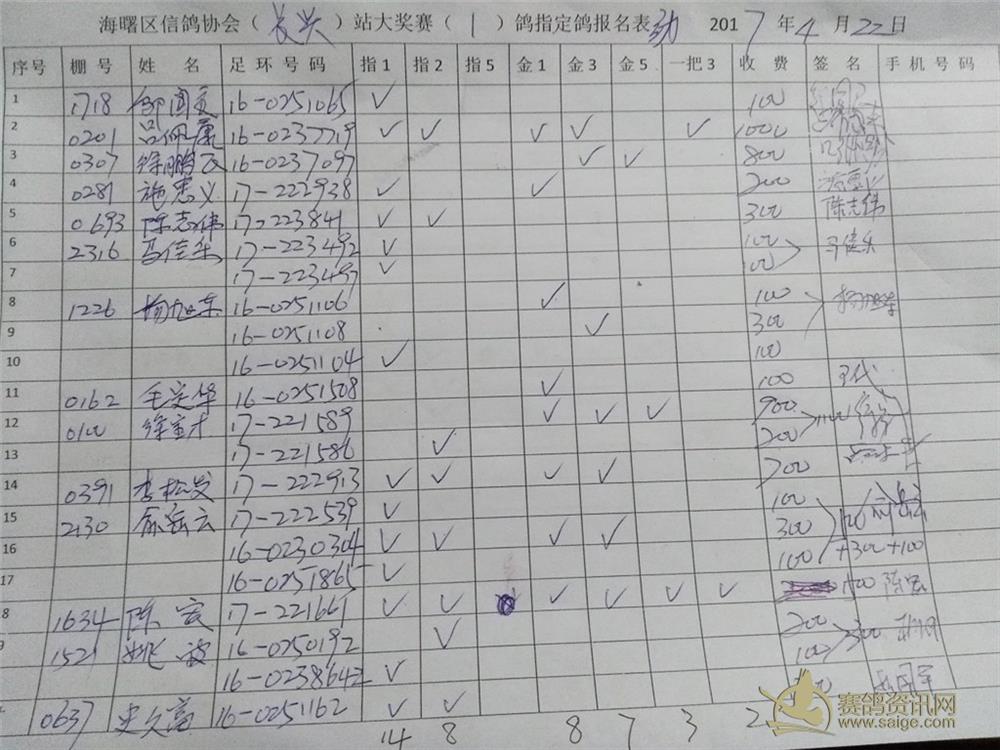 海曙区信鸽协会（长兴）站大奖赛（1）鸽指定鸽报名表 2017年4月22日
序号 棚号 姓名 足环号码 指1 指2 指5 金1 金3 金5 一把3 收费 签名 手机号码
1 1718 16-0251065 ✓ 100
2 0201 吕佩康 16-0237719 ✓ ✓ ✓ ✓ ✓ 1000
3 0307 徐鹏飞 16-0237097 ✓ ✓ 800
4 0281 施惠义 17-222938 ✓ ✓ 200 施惠义
5 0693 陈志伟 17-223841 ✓ ✓ 300 陈志伟
6 2316 马佳乐 17-223492 ✓ 100 马佳乐
7 17-223497 ✓ 100
8 1226 杨旭东 16-0251106 ✓ 100 杨旭东
9 16-0251108 ✓ 300
10 16-0251104 ✓ 100
11 0162 毛定华 16-0251508 ✓ 100
12 0100 17-221589 ✓ ✓ ✓ 900
13 17-221586 ✓ 200
14 0391 李松发 17-222913 ✓ ✓ ✓ ✓ 700
15 2130 17-222539 ✓ 100
16 16-0230304 ✓ ✓ ✓ ✓ 300
17 16-0251865 ✓ 100 +300+100
8 1634 陈宏 17-221661 ✓ ✓ ✓ ✓ ✓ ✓ 陈宏
9 1521 姚波 16-0250192 ✓ 200 300
16-0238642 ✓ 100
0637 史久富 16-0251162 ✓ ✓
14 8 8 7 3 2
赛鸽资讯网
www.saige.com